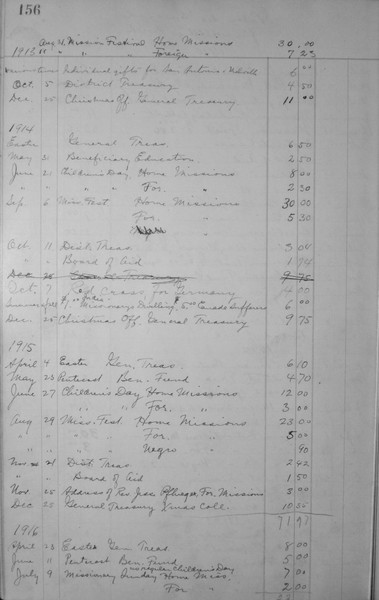 156
Aug Mission Festival Home Missions 30.00
1913 " " " Foreign " 7 23
Individual gifts for San Antonio 6 00
Oct. 5 District Treasury 4 50
Dec. 25 Christmas Off. General Treasury 11 00
1914
Easter General Treas. 6 50
May 31 Beneficiary Education 2 50
June Children's Day, Home Missions 8 00
" " " For. " 2 30
Sep 6 Miss. Fest Home Missions 30 00
For. " 5 30
Oct. 11 Dist. Treas. 3 04
" " Board of Aid 1 94
Dec 25 General Treasury 9 75
Oct. 7 Red Cross for Germany
Missionary 6 00
Dec. 25 Christmas Off. General Treasury 9 75
1915
April 4 Easter Gen. Treas. 6 10
May 23 Pentecost Ben. Fund 4 70
June 27 Children's Day Home Missions 12 00
" " " For. " 3 00
Aug 29 Miss. Fest. Home Missions 23 00
" " " For. " 5 00
" " " Negro " 90
Nov. 21 Dist. Treas. 2 42
" " Board of Aid 1 50
Nov 25 Address of Rev. Jess Pflieger, For. Missions 3 00
Dec 25 General Treasury Xmas Coll. 10 55
71.97
1916
April 23 Easter Gen Treas. 8 00
June 11 Pentecost Ben. Fund 5 00
no regular Children's Day
July 9 Missionary Sunday Home Miss. 7 00
For " 2 00